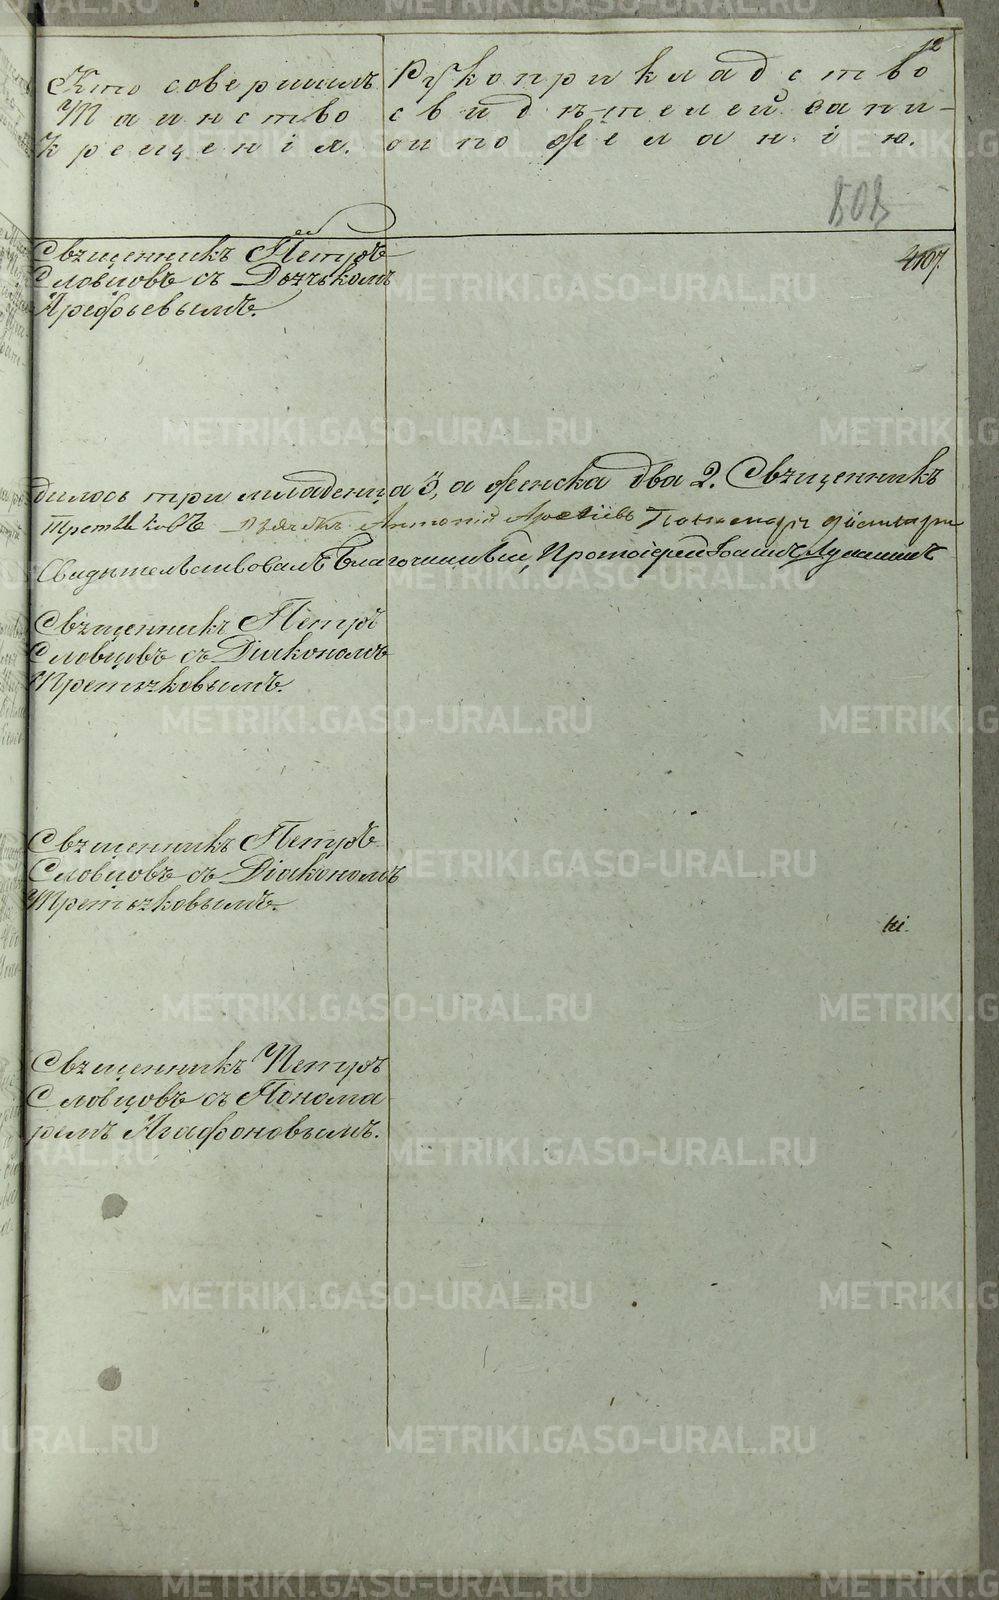 12
Кто совершалъ Рукоприкладство
Таинство свидѣтелей запи-
Крещенія. си по желанію.
803
Священникъ Петръ
4107.
Словцовъ съ Дьячкомъ
Арефьевымъ.
дилось три младенца 3, а женска два 2. Священникъ
Третьяковъ Дьячекъ Антоній Пономарь
Свидѣтельствовалъ Благочинный, Протоіерей Іоаннъ
Священникъ Петръ
Словцовъ съ Діякономъ
Третьяковымъ.
Священникъ Петръ
Словцовъ съ Діякономъ
Третьяковымъ.
Священникъ Петръ
Словцовъ съ Понома
ремъ Агафоновымъ.
METRIKI.GASO-URAL.RU